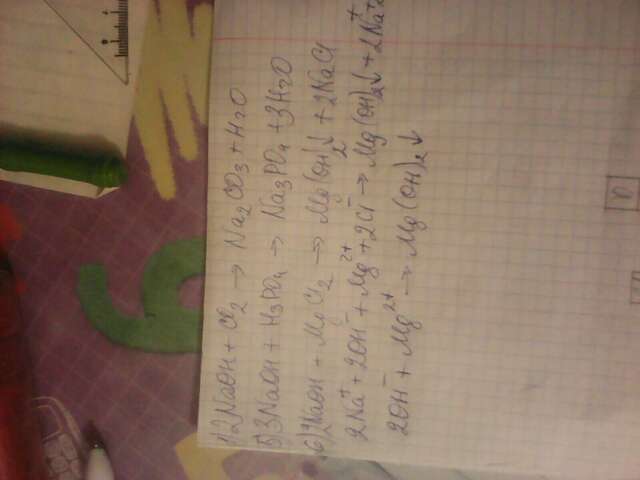 1) 2NaOH + CO₂ → Na₂CO₃ + H₂O
5) 3NaOH + H₃PO₄ → Na₃PO₄ + 3H₂O
6) 2NaOH + MgCl₂ → Mg(OH)₂↓ + 2NaCl
2Na⁺ + 2OH⁻ + Mg²⁺ + 2Cl⁻ → Mg(OH)₂↓ + 2Na⁺ +
2OH⁻ + Mg²⁺ → Mg(OH)₂↓